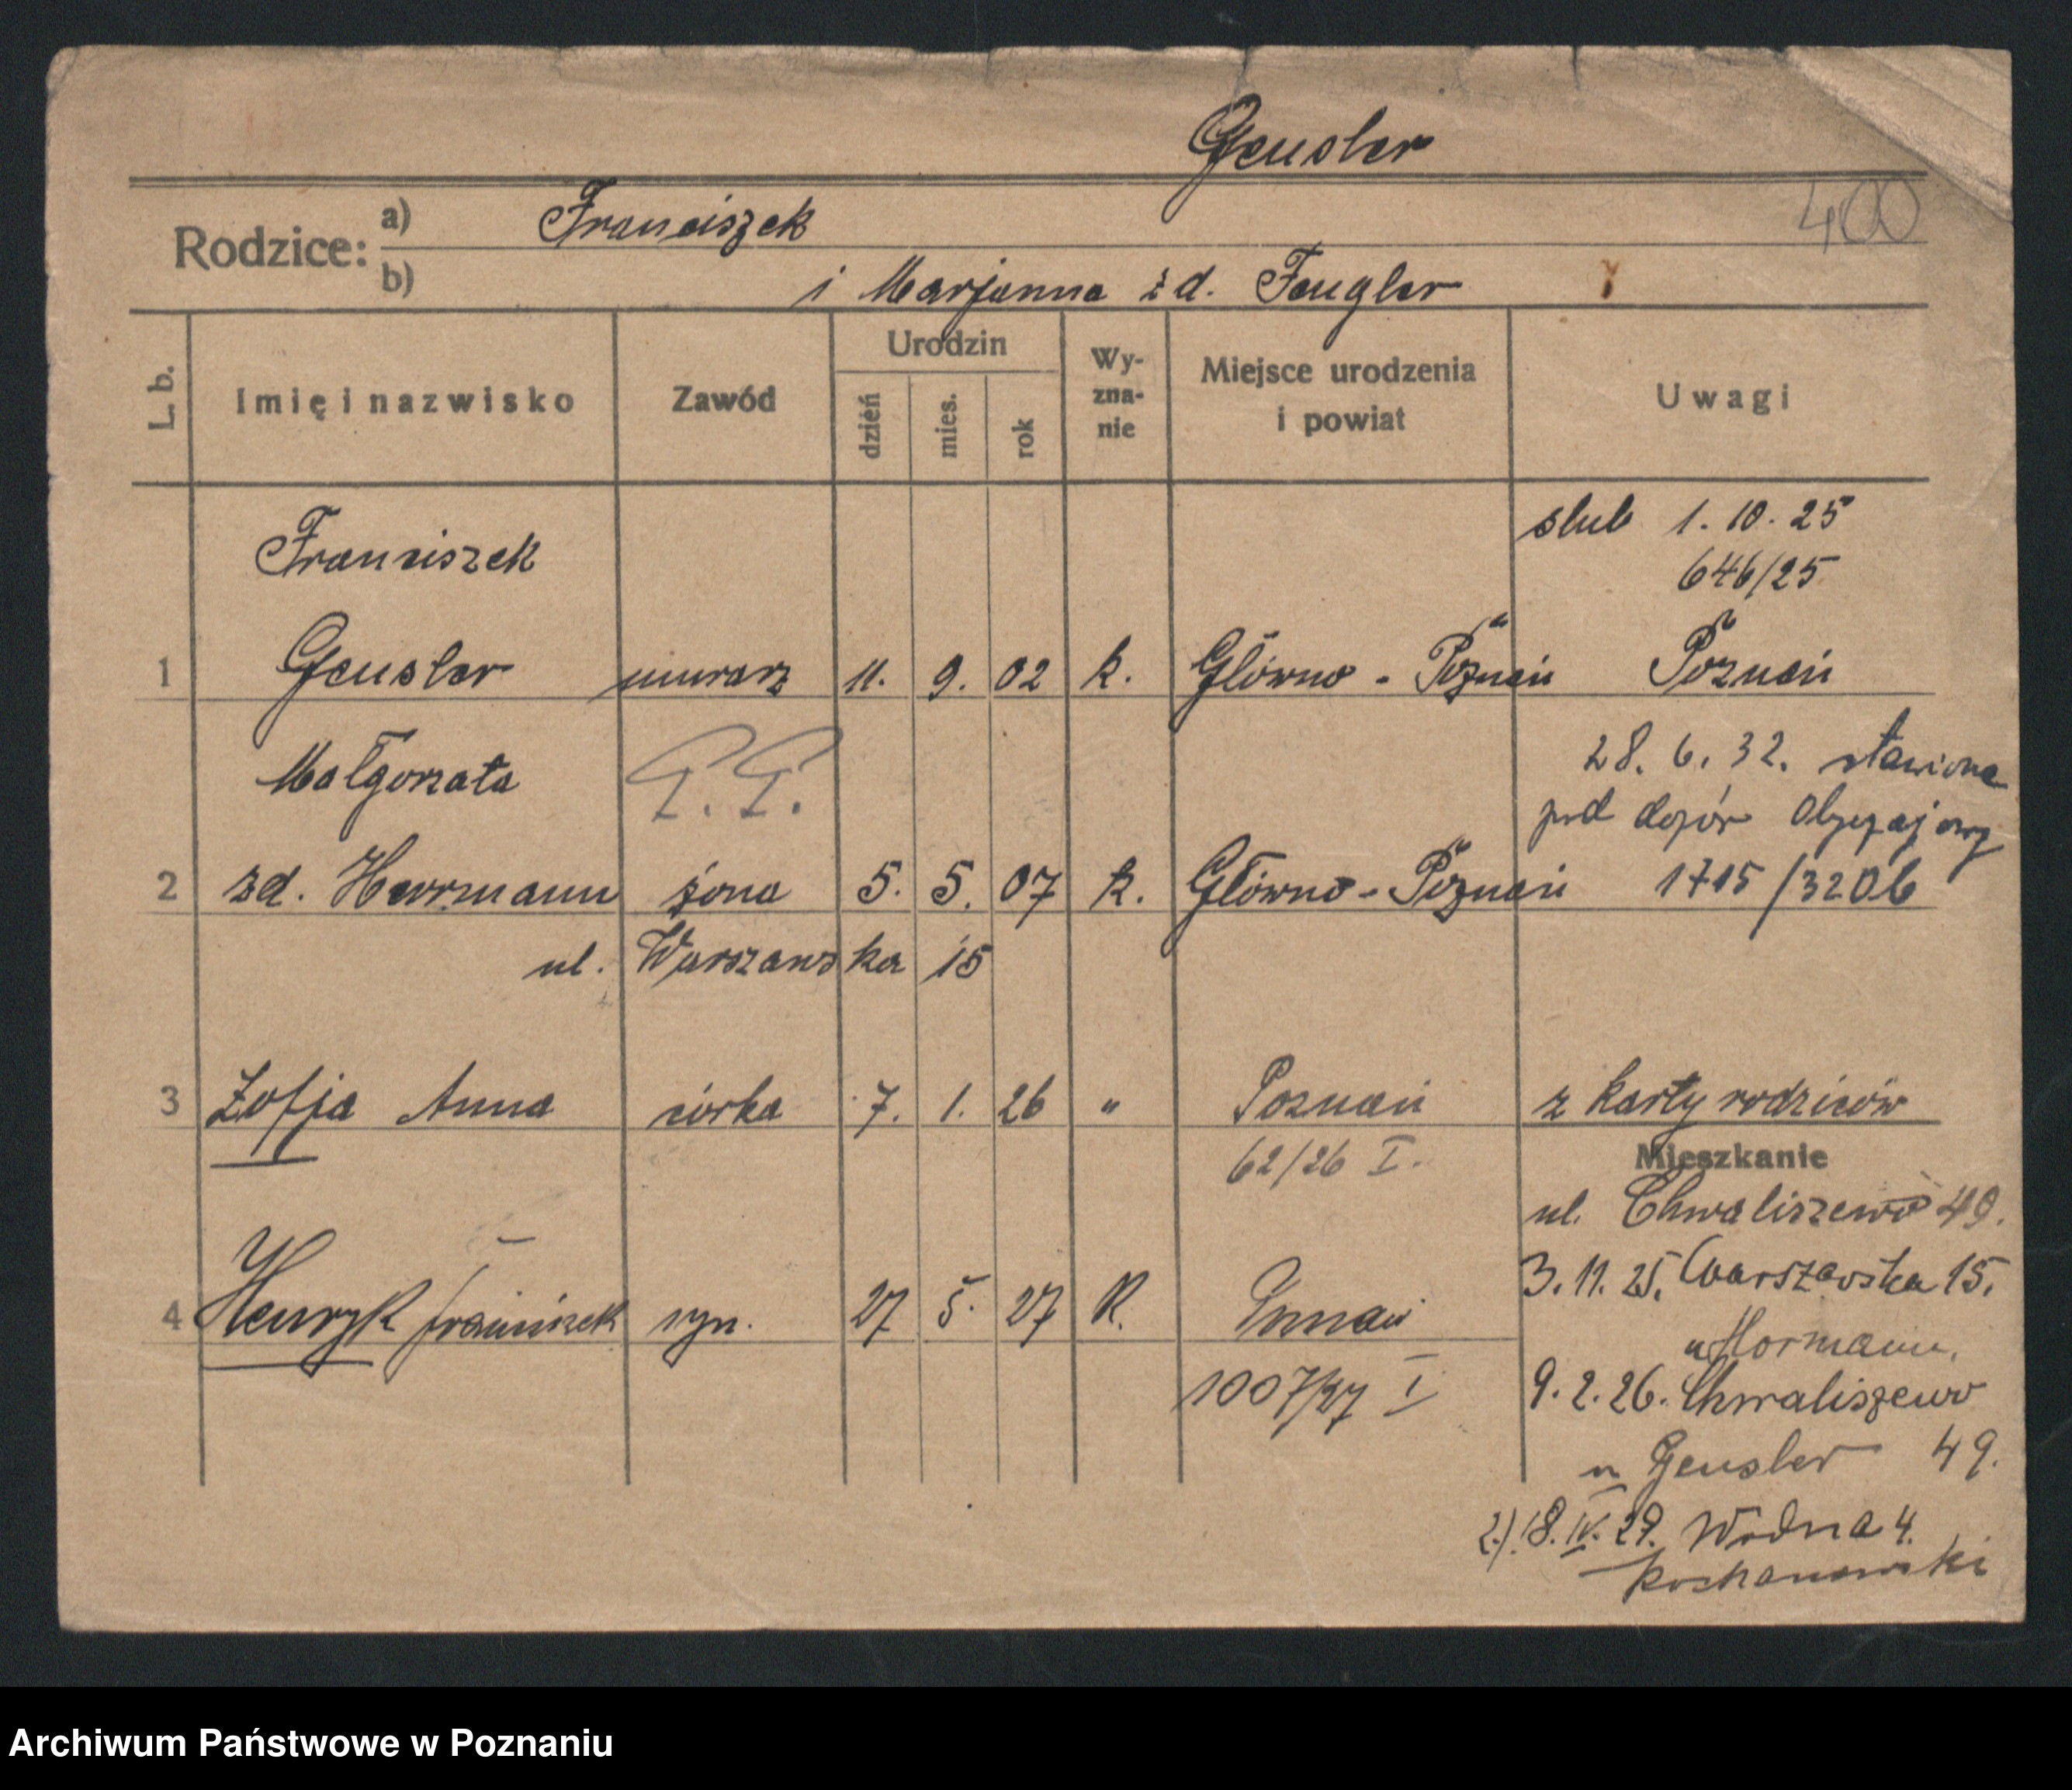 Geusler
400
Rodzice: a) Franciszek
b) i Marjanna z d. Feugler
L. b.
Imię i nazwisko
Zawód
Urodzin
dzień
mies.
rok
Wy-
zna-
nie
Miejsce urodzenia
i powiat
Uwagi
Franciszek
ślub 1.10.25
646/25
1 Geusler murarz 11. 9. 02 k. Główno - Poznań Poznań
Małgorzata
28. 6. 32. stawiona
pod dozór Obyczajowy
2 zd. Herrmann żona 5. 5. 07 k. Główno - Poznań 1715/32 Ob
ul. Warszawska 15
3 Zofja Anna córka 7. 1. 26 " Poznań z karty rodziców
62/26 I.
Mieszkanie
ul. Chwaliszewo 49.
3.11.25. Warszawska 15.
u Hormann.
4 Henryk Franciszek syn. 27 5. 27 k. Poznań
1007/27 I
9.2.26. Chwaliszewo
u Geusler 49.
2.) 18.IV.29. Wodna 4.
Kochanowski
Archiwum Państwowe w Poznaniu